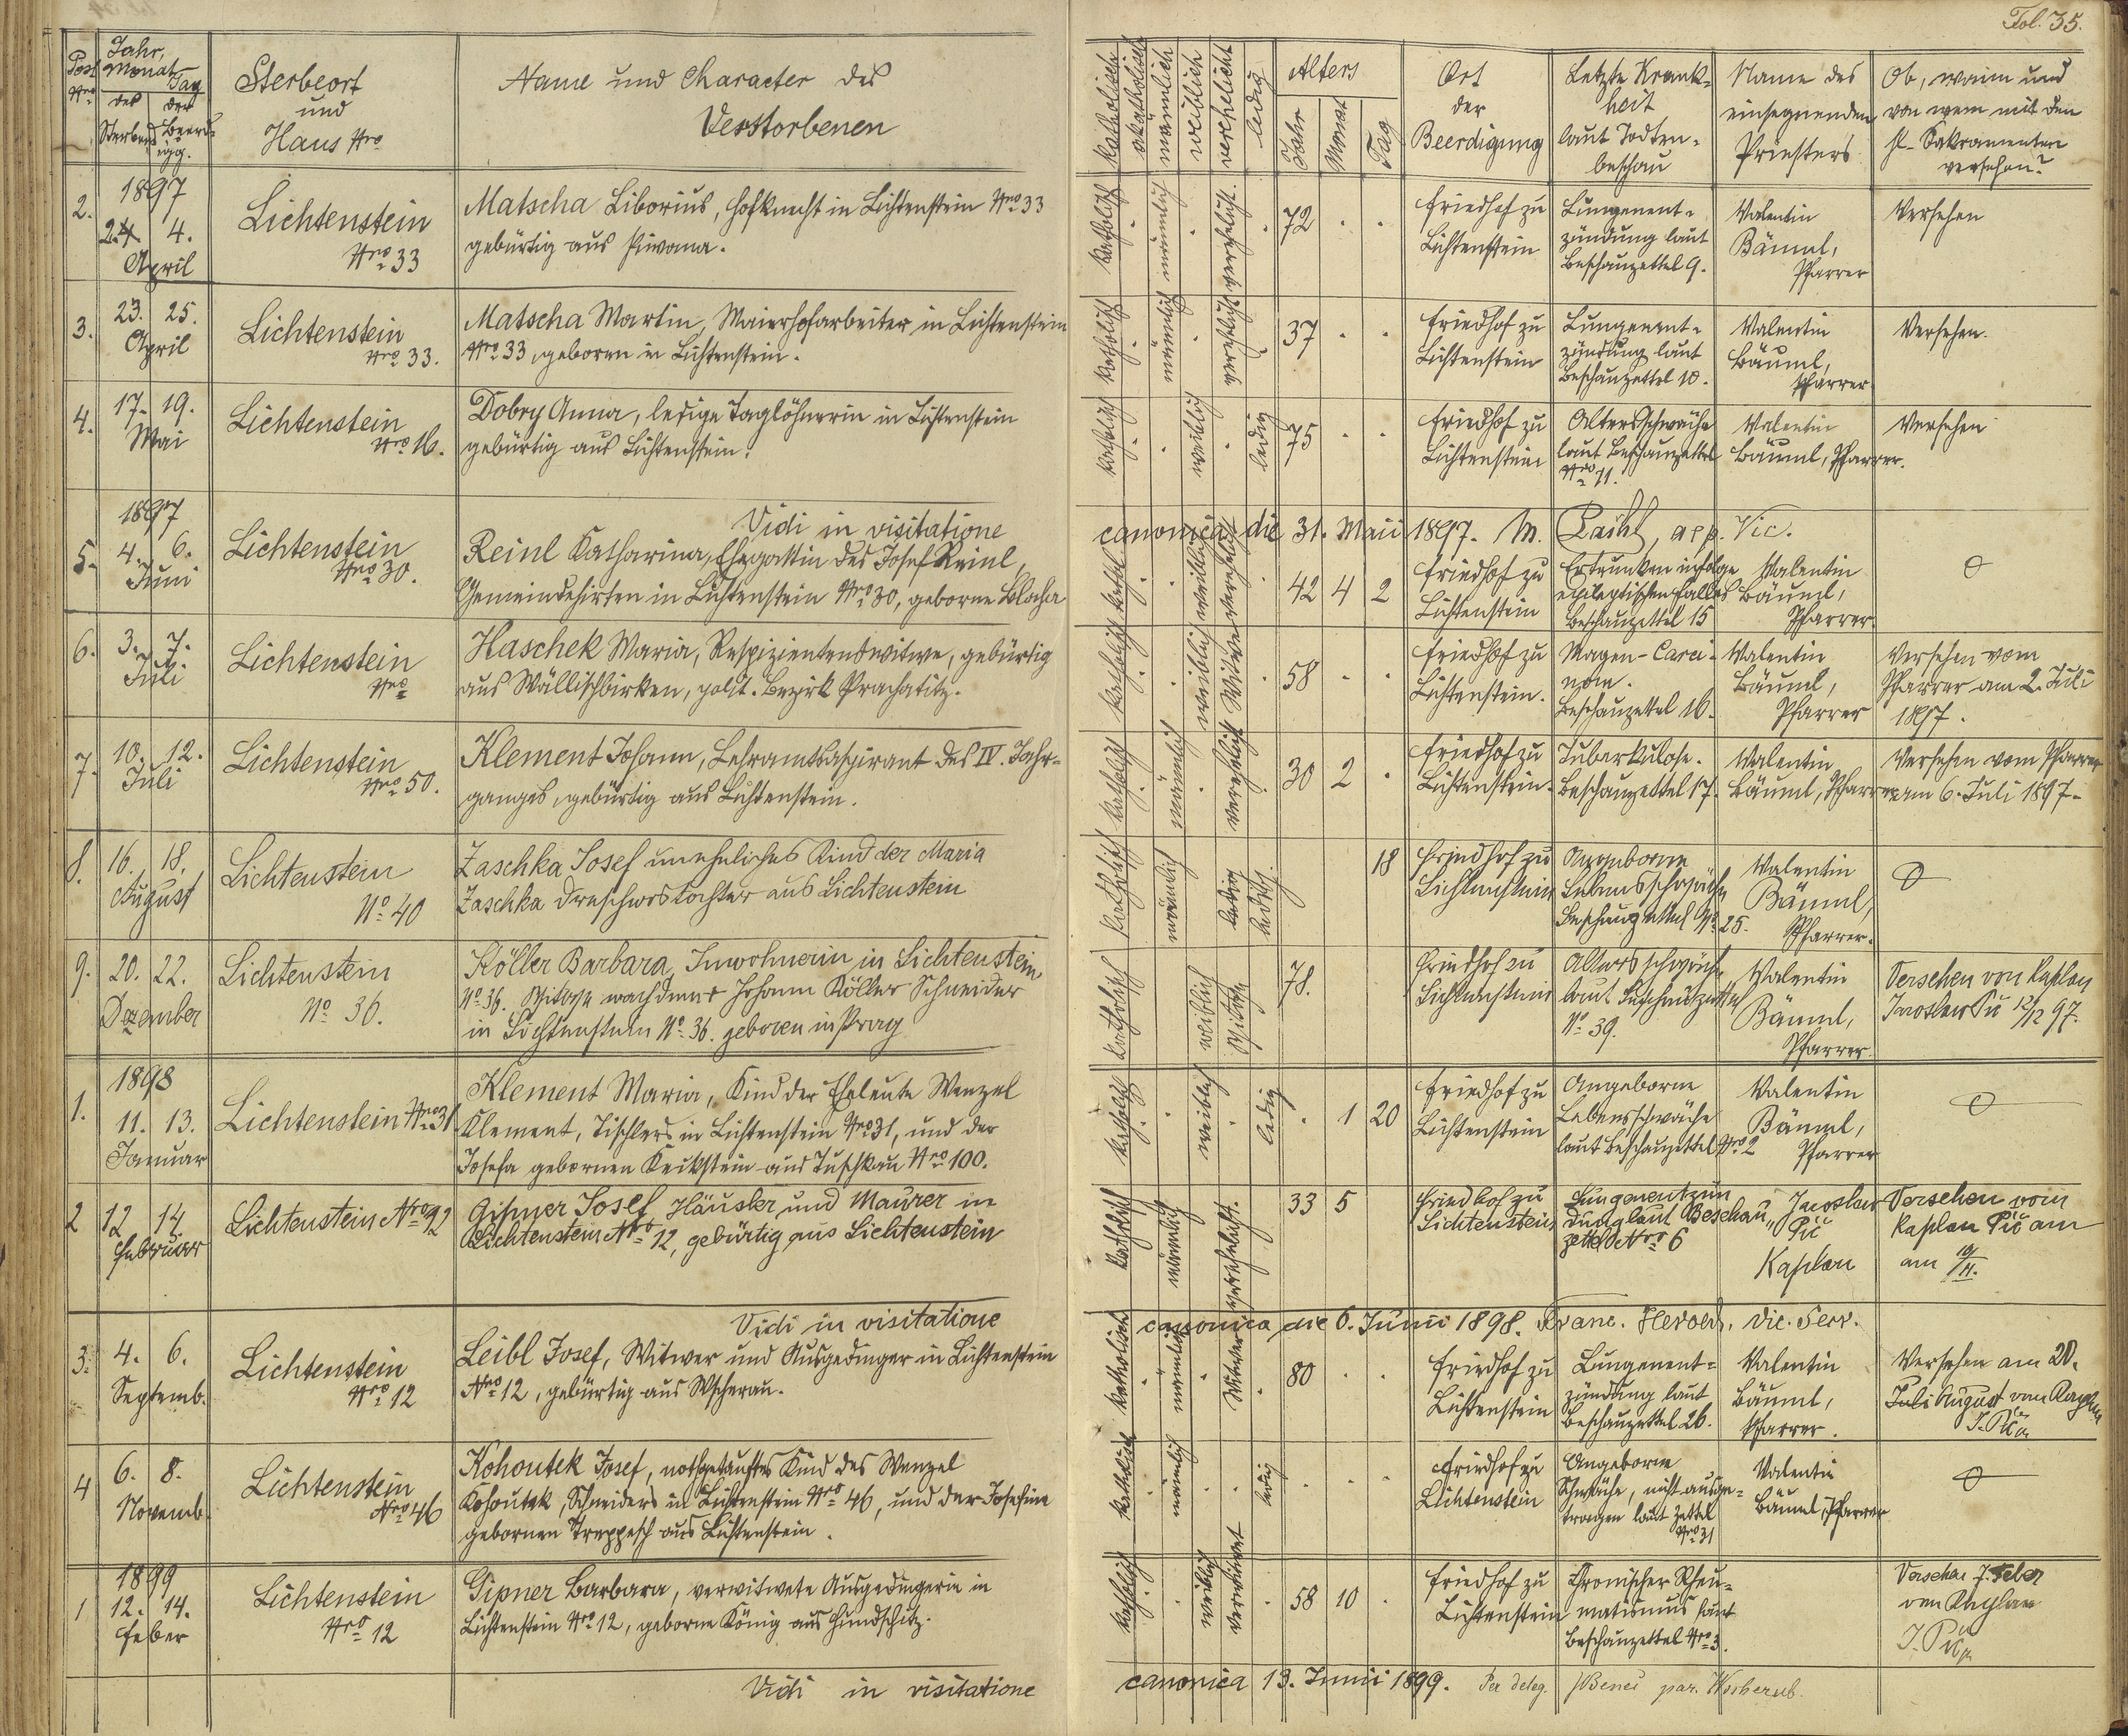 Fol. 35.
Post Nro
Jahr, Monat Tag
des Sterbens
der Beerdigg.
Sterbeort
und
Haus Nro
Name und Character des
Verstorbenen
katholisch
akatholisch
männlich
weiblich
verehelicht
ledig
Alters
Jahr
Monat
Tag
Ort
der
Beerdigung
Letzte Krank-
heit
laut Todten-
beschau
Name des
einsegnenden
Priesters
Ob, wann und
von wem mit den
hl. Sakramenten
versehen?
2.
1897
2. 4.
April
Lichtenstein
Nro 33
Matscha Liborius, Hofknecht in Lichtenstein Nro 33
gebürtig aus Piwana.
katholisch
männlich
verehelicht.
72
Friedhof zu
Lichtenstein
Lungenent-
zündung laut
Beschauzettel 9.
Valentin
Bäuml,
Pfarrer
Versehen
3.
23. 25.
April
Lichtenstein
Nro 33.
Matscha Martin, Maierhofarbeiter in Lichtenstein
Nro 33, geboren in Lichtenstein.
katholisch
männlich
verehelicht
37
Friedhof zu
Lichtenstein
Lungenent-
zündung laut
Beschauzettel 10.
Valentin
Bäuml,
Pfarrer
Versehen.
4.
17. 19.
Mai
Lichtenstein
Nro 16.
Dobry Anna, ledige Taglöhnerin in Lichtenstein
gebürtig aus Lichtenstein.
katholisch
weiblich
ledig
75
Friedhof zu
Lichtenstein
Altersschwäche
laut Beschauzettel
Nro 11.
Valentin
Bäuml, Pfarrer.
Versehen
Vidi in visitatione
canonica die 31. Maii 1897. M. app. Vic.
5.
1897
4. 6.
Juni
Lichtenstein
Nro 30.
Reinl Katharina, Ehegattin des Josef Reinl,
Gemeindehirten in Lichtenstein Nro 30, geborne Blacha
kathol.
weiblich
verehelicht
42 4 2
Friedhof zu
Lichtenstein
Ertrunken infolge
epileptischen Falles
Beschauzettel 15
Valentin
Bäuml,
Pfarrer.
6.
3. 7.
Juli
Lichtenstein
Nro
Haschek Maria, Respizientenswitwe, gebürtig
aus Wällischbirken, polit. Bezirk Prachatitz.
katholisch
weiblich
Witwe
58
Friedhof zu
Lichtenstein.
Magen-Carci-
nom.
Beschauzettel 16.
Valentin
Bäuml,
Pfarrer
Versehen vom
Pfarrer am 2. Juli
1897.
7.
10. 12.
Juli
Lichtenstein
Nro 50.
Klement Johann, Lehramtsaspirant des IV. Jahr-
ganges, gebürtig aus Lichtenstein.
katholisch
männlich
verehelicht
30 2
Friedhof zu
Lichtenstein.
Tuberkulose.
Beschauzettel 17.
Valentin
Bäuml, Pfarrer
Versehen vom Pfarrer
am 6. Juli 1897.
8.
16. 18.
August
Lichtenstein
No 40
Zaschka Josef uneheliches Kind der Maria
Zaschka Drescherstochter aus Lichtenstein
katholisch
männlich
ledig
ledig.
18
Friedhof zu
Lichtenstein
Angeborne
Lebensschwäche
Beschauzettel No 25.
Valentin
Bäuml,
Pfarrer.
9.
20. 22.
Dezember
Lichtenstein
No 36.
Köller Barbara, Inwohnerin in Lichtenstein
No 36. Witwe nach dem † Johann Köller Schneider
in Lichtenstein No 36. geboren in Prag
katholisch
weiblich
Witwe
78.
Friedhof zu
Lichtenstein
Altersschwäche
laut Beschauzettel
No 39.
Valentin
Bäuml,
Pfarrer
Versehen von Kaplan
Jaroslav Pič 12/12 97.
1.
1898
11. 13.
Januar
Lichtenstein Nro 31
Klement Maria, Kind der Eheleute Wenzel
Klement, Tischlers in Lichtenstein Nro 31, und der
Josefa gebornen Keilstein aus Tuschkau Nro 100.
katholisch
weiblich
ledig
1 20
Friedhof zu
Lichtenstein
Angeborne
Lebensschwäche
laut Beschauzettel Nro 2
Valentin
Bäuml,
Pfarrer
2
12 14
Februar
Lichtenstein Nro 12
Gipner Josef Häusler und Maurer in
Lichtenstein Nro 12, gebürtig aus Lichtenstein
katholisch
männlich
verehelicht.
33 5
Friedhof zu
Lichtenstein
Lungenentzün
dung laut Beschau„
zettel Nro 6
Jaroslav
Pič
Kaplan
Versehen vom
Kaplan Pič am
am
Vidi in visitatione
canonica die 6. Junii 1898. Franc. Herold. Vic. Secr.
3.
4. 6.
Septemb.
Lichtenstein
Nro 12
Leibl Josef, Witwer und Ausgedinger in Lichtenstein
Nro 12, gebürtig aus Wscherau.
katholisch
männlich
Witwer
80
Friedhof zu
Lichtenstein
Lungenent-
zündung laut
Beschauzettel 26.
Valentin
Bäuml,
Pfarrer.
Versehen am 20.
Juli August vom Kaplan
J. Pič
4
6. 8.
Novemb.
Lichtenstein
Nro 46
Kohoutek Josef, nothgetauftes Kind des Wenzel
Kohoutek, Schneiders in Lichtenstein Nro 46, und der Josefine
gebornen Treppesch aus Lichtenstein.
katholisch
männlich
ledig
Friedhof zu
Lichtenstein
Angeborne
Schwäche, nicht ausge-
tragen laut Zettel
Nro 31
Valentin
Bäuml, Pfarrer
1
1899
12. 14.
Feber
Lichtenstein
Nro 12
Gipner Barbara, verwitwete Ausgedingerin in
Lichtenstein Nro 12, geborne König aus Hundschitz.
katholisch
weiblich
verwitwet
58 10
Friedhof zu
Lichtenstein
Chronischer Rheu-
matismus laut
Beschauzettel Nro 3.
Versehen 7. Feber
von Kaplan
J. Pič
Vidi in visitatione
canonica 13. Junii 1899. Per deleg. par.